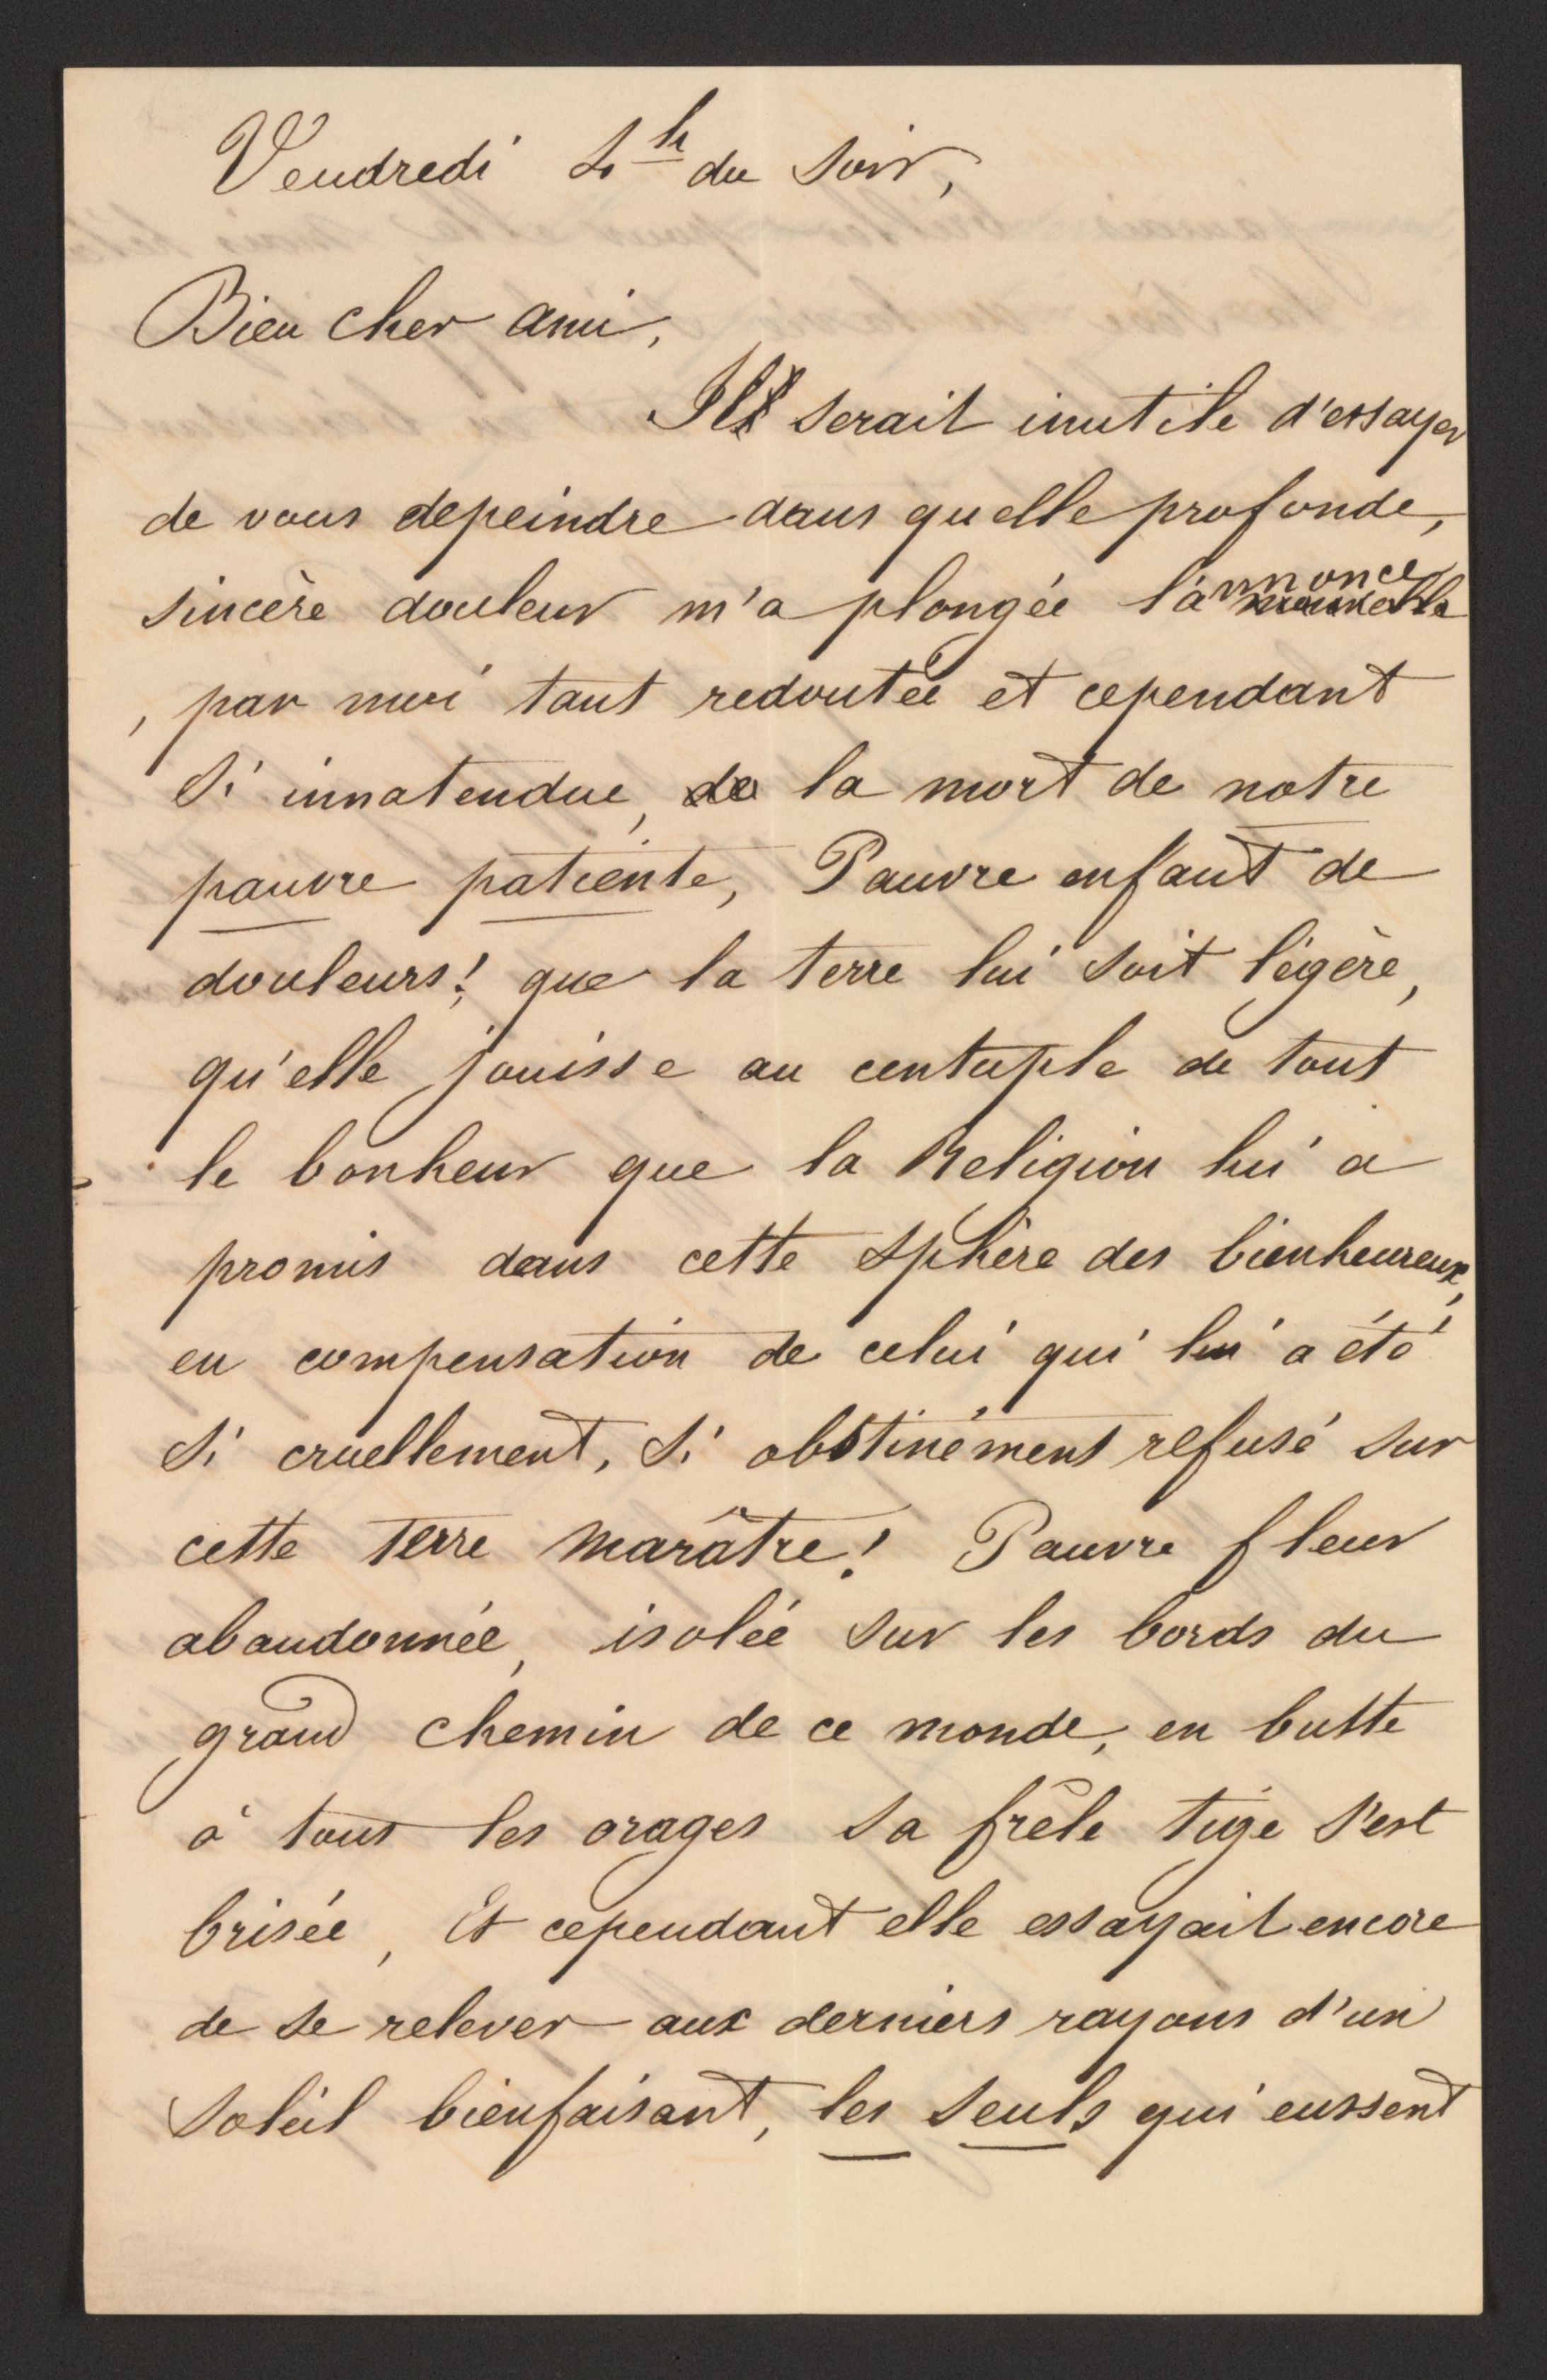 Vendredi 4h du soir,
Bien cher ami,
Il serait inutile d'essayer
de vous depeindre dans quelle profonde,
sincère douleur m'a plongée l'annonce
, par moi tant redoutée et cependant
si innatendue, de la mort de notre
pauvre patiente, Pauvre enfant de
douleurs! que la terre lui soit légère,
qu'elle jouisse au centuple de tout
le bonheur que la Religion lui a
promis dans cette sphère des bienheureux,
en compensation de celui qui lui a été
si cruellement, si obstinément refusé sur
cette terre marâtre! Pauvre fleur
abandonnée, isolée sur les bords du
grand chemin de ce monde, en butte
à tous les orages sa frêle tige s'est
brisée, Et cependant elle essayait encore
de se relever aux derniers rayons d'un
soleil bienfaisant, les seuls qui eussent